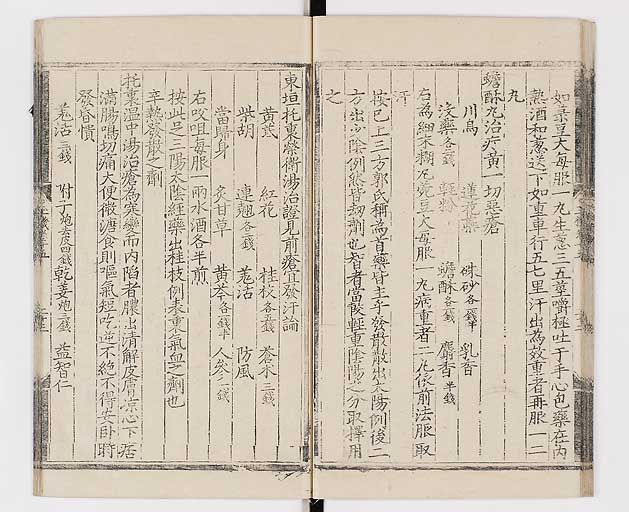 如菉豆大每服一丸生葱三五莖嚼極吐于手心包藥在內
熱酒和葱送下如重車行五七里汗出為效重者再服一二
丸
蟾酥丸治疔黃一切惡瘡
川烏 蓮花蘂 朱砂各錢半 乳香
沒藥各錢 輕粉 蟾酥各錢 麝香半錢
右為細末糊丸菀豆大每服一丸病重者二丸依前法服取
汗
按已上三方郭氏稱為首藥皆主于發散出太陽例後二
方出少陰例然皆劫劑也智者當飲輕重陰陽之分取擇用
之
東垣托裏榮衛湯治證見前瘡宜發汗論
黃芪 紅花 桂枝各五錢 蒼朮三錢
柴胡 連翹各二錢 羗活 防風
當歸身 炙甘草 黃芩各錢半 人參一錢
右㕮咀每服一兩水酒各半煎
按此足三陽太陰經藥出桂枝例表裏氣血之劑也
辛熱發散之劑
托裏溫中湯治瘡為寒變而內陷者膿出清解皮膚凉心下痞
滿腸鳴切痛大便微溏食則嘔氣短吃逆不絶不得安臥時
發昏憒
羗活三錢 附子炮去皮四錢 乾姜炮三錢 益智仁